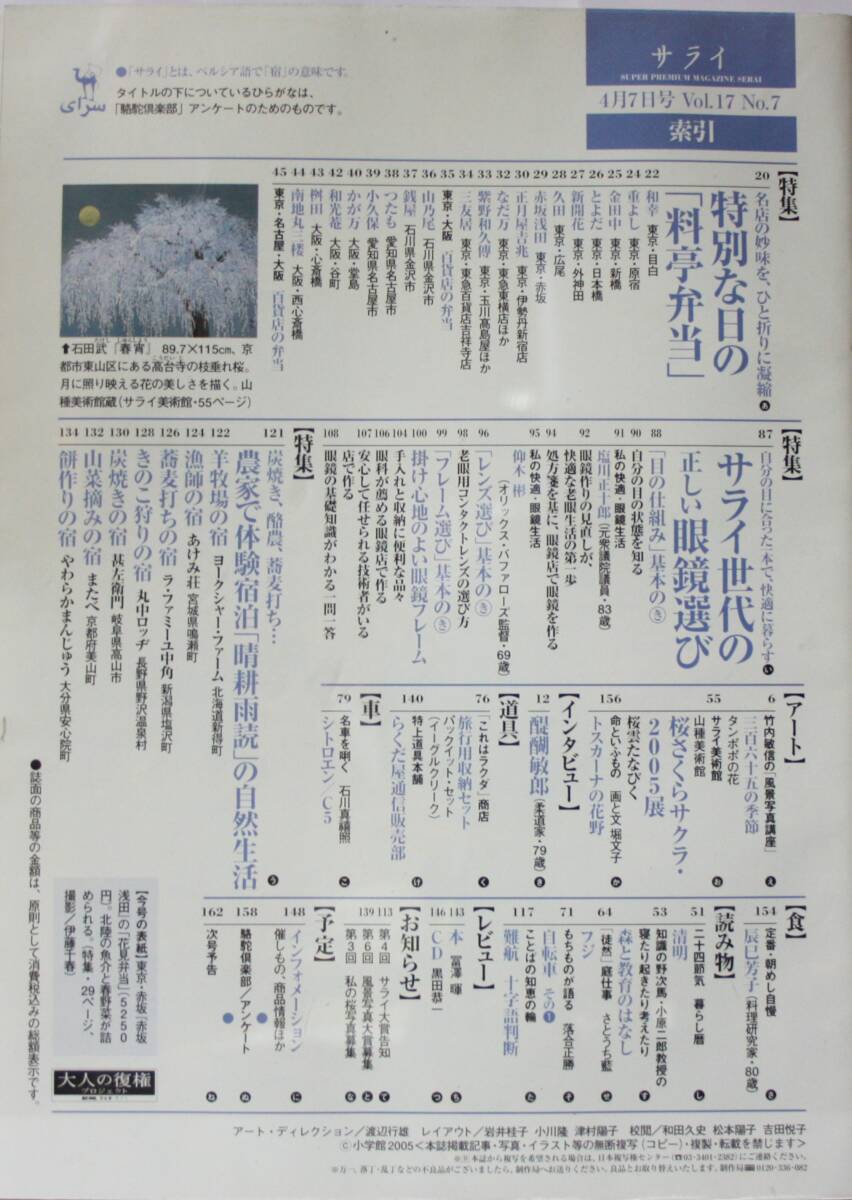 サライ
SUPER PREMIUM MAGAZINE SERAI
4月7日号 Vol.17 No.7
索引
●「サライ」とは、ペルシア語で「宿」の意味です。
タイトルの下についているひらがなは、
「駱駝倶楽部」アンケートのためのものです。
سرای
【特集】
20 名店の妙味を、ひと折りに凝縮 あ
特別な日の
「料亭弁当」
22 和幸 東京・目白
24 重よし 東京・原宿
25 金田中 東京・新橋
26 とよだ 東京・日本橋
27 新開花 東京・外神田
28 久田 東京・広尾
29 赤坂浅田 東京・赤坂
30 正月屋吉兆 東京・伊勢丹新宿店
32 なだ万 東京・東急東横店ほか
33 紫野和久傳 東京・玉川髙島屋ほか
34 三友居 東京・東急百貨店吉祥寺店
35 東京・大阪 百貨店の弁当
36 山乃尾 石川県金沢市
37 銭屋 石川県金沢市
38 つたも 愛知県名古屋市
39 小久保 愛知県名古屋市
40 かが万 大阪・堂島
42 和光菴 大阪・谷町
43 桝田 大阪・心斎橋
44 南地丸三楼 大阪・西心斎橋
45 東京・名古屋・大阪 百貨店の弁当
⬆石田武「春宵」 89.7×115cm、京
都市東山区にある高台寺の枝垂れ桜。
月に照り映える花の美しさを描く。山
種美術館蔵(サライ美術館・55ページ)
【特集】
87 自分の目に合った一本で、快適に暮らす い
サライ世代の
正しい眼鏡選び
88 「目の仕組み」基本の㋖
90 自分の目の状態を知る
91 私の快適・眼鏡生活
塩川正十郎(元衆議院議員・83歳)
92 眼鏡作りの見直しが、
快適な老眼生活の第一歩
94 処方箋を基に、眼鏡店で眼鏡を作る
95 私の快適・眼鏡生活
仰木 彬
(オリックス・バファローズ監督・69歳)
96 「レンズ選び」基本の㋖
98 老眼用コンタクトレンズの選び方
99 「フレーム選び」基本の㋖
100 掛け心地のよい眼鏡フレーム
104 手入れと収納に便利な品々
106 眼科が薦める眼鏡店で作る
107 安心して任せられる技術者がいる
店で作る
108 眼鏡の基礎知識がわかる一問一答
【特集】
121 炭焼き、酪農、蕎麦打ち…
農家で体験宿泊「晴耕雨読」の自然生活 う
122 羊牧場の宿 ヨークシャー・ファーム 北海道新得町
124 漁師の宿 あけみ荘 宮城県鳴瀬町
126 蕎麦打ちの宿 ラ・ファミーユ中角 新潟県塩沢町
128 きのこ狩りの宿 丸中ロッヂ 長野県野沢温泉村
130 炭焼きの宿 甚左衛門 岐阜県高山市
132 山菜摘みの宿 またべ 京都府美山町
134 餅作りの宿 やわらかまんじゅう 大分県安心院町
【アート】
6 竹内敏信の「風景写真講座」
三百六十五の季節
タンポポの花 え
55 サライ美術館
山種美術館
桜さくらサクラ・
2005展 お
桜雲たなびく
156 命といふもの 画と文 堀文子
トスカーナの花野 か
【インタビュー】
12 醍醐敏郎(柔道家・79歳) き
【道具】
76 「これはラクダ」商店
旅行用収納セット
パックイット・セット
(イーグルクリーク) く
140 特上道具本舗
らくだ屋通信販売部 け
【車】
79 名車を唎く 石川真禧照
シトロエン/C5 こ
【食】
154 定番・朝めし自慢
辰巳芳子(料理研究家・80歳) さ
【読み物】
51 二十四節気 暮らし暦
清明 し
53 知識の野次馬・小原二郎教授の
寝たり起きたり考えたり
森と教育のはなし す
64 「徒然」庭仕事 さとうち藍
フジ せ
71 もちものが語る 落合正勝
自転車 その❶ そ
117 ことばの知恵の輪
難航 十字語判断 た
【レビュー】
143 本 冨澤 暉 ち
146 CD 黒田恭一 つ
【お知らせ】
113 第4回 サライ大賞告知 て
139 第6回 風景写真大賞募集 と
第3回 私の桜写真募集 な
【予定】
148 インフォメーション
催しもの、商品情報ほか に
158 駱駝倶楽部/アンケート ぬ
162 次号予告 ね
【今号の表紙】東京・赤坂「赤坂
浅田」の「花見弁当」(5250
円)。北陸の魚介と春野菜が詰
められる。(特集・29ページ、
撮影/伊藤千春)
大人の復権
プロジェクト
●誌面の商品等の金額は、原則として消費税込みの総額表示です。
アート・ディレクション/渡辺行雄 レイアウト/岩井桂子 小川隆 津村陽子 校閲/和田久史 松本陽子 吉田悦子
©小学館2005<本誌掲載記事・写真・イラスト等の無断複写(コピー)・複製・転載を禁じます>
※®本誌から複写を希望される場合は、日本複写権センター(☎03-3401-2382)にご連絡ください。
※万一、落丁・乱丁などの不良品がございましたら、制作局へお送りください。良品とお取り替えいたします。制作局0120-336-082